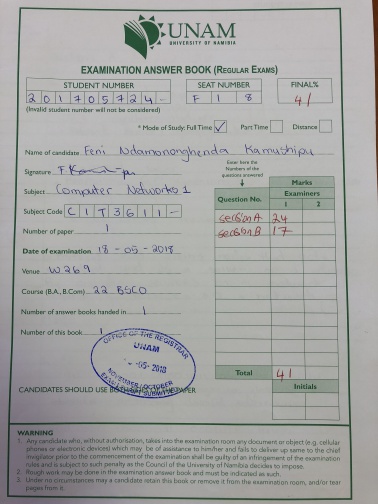 UNAM
UNIVERSITY OF NAMIBIA
EXAMINATION ANSWER BOOK (REGULAR EXAMS)
STUDENT NUMBER SEAT NUMBER FINAL%
2 0 1 7 0 5 7 2 4 - F 1 8 41
(Invalid student number will not be considered)
* Mode of Study: Full Time ✓ Part Time Distance
Name of candidate Feni Ndamononghenda Kamushipu
Signature
Subject Computer Networks 1
Subject Code C I T 3 6 1 1 -
Number of paper 1
Date of examination 18-05-2018
Venue W269
Course (B.A., B.Com) 22 BSCO
Number of answer books handed in 1
Number of this book 1
Enter here the Numbers of the questions answered
Marks
Examiners
Question No. 1 2
section A 24
section B 17
Total 41
Initials
OFFICE OF THE REGISTRAR
UNAM
-05- 2018
NOVEMBER/OCTOBER
CANDIDATES SHOULD USE PAPER
WARNING
1. Any candidate who, without authorisation, takes into the examination room any document or object (e.g. cellular
phones or electronic devices) which may be of assistance to him/her and fails to deliver up same to the chief
invigilator prior to the commencement of the examination shall be guilty of an infringement of the examination
rules and is subject to such penalty as the Council of the University of Namibia decides to impose.
2. Rough work may be done in the examination answer book and must be indicated as such.
3. Under no circumstances may a candidate retain this book or remove it from the examination room, and/or tear
pages from it.